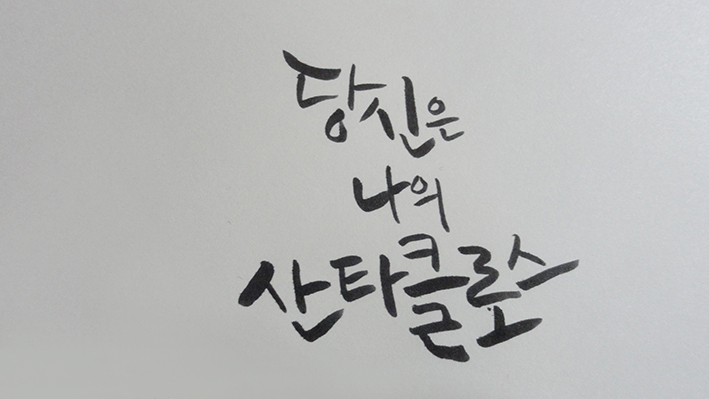 당신은
나의
산타클로스